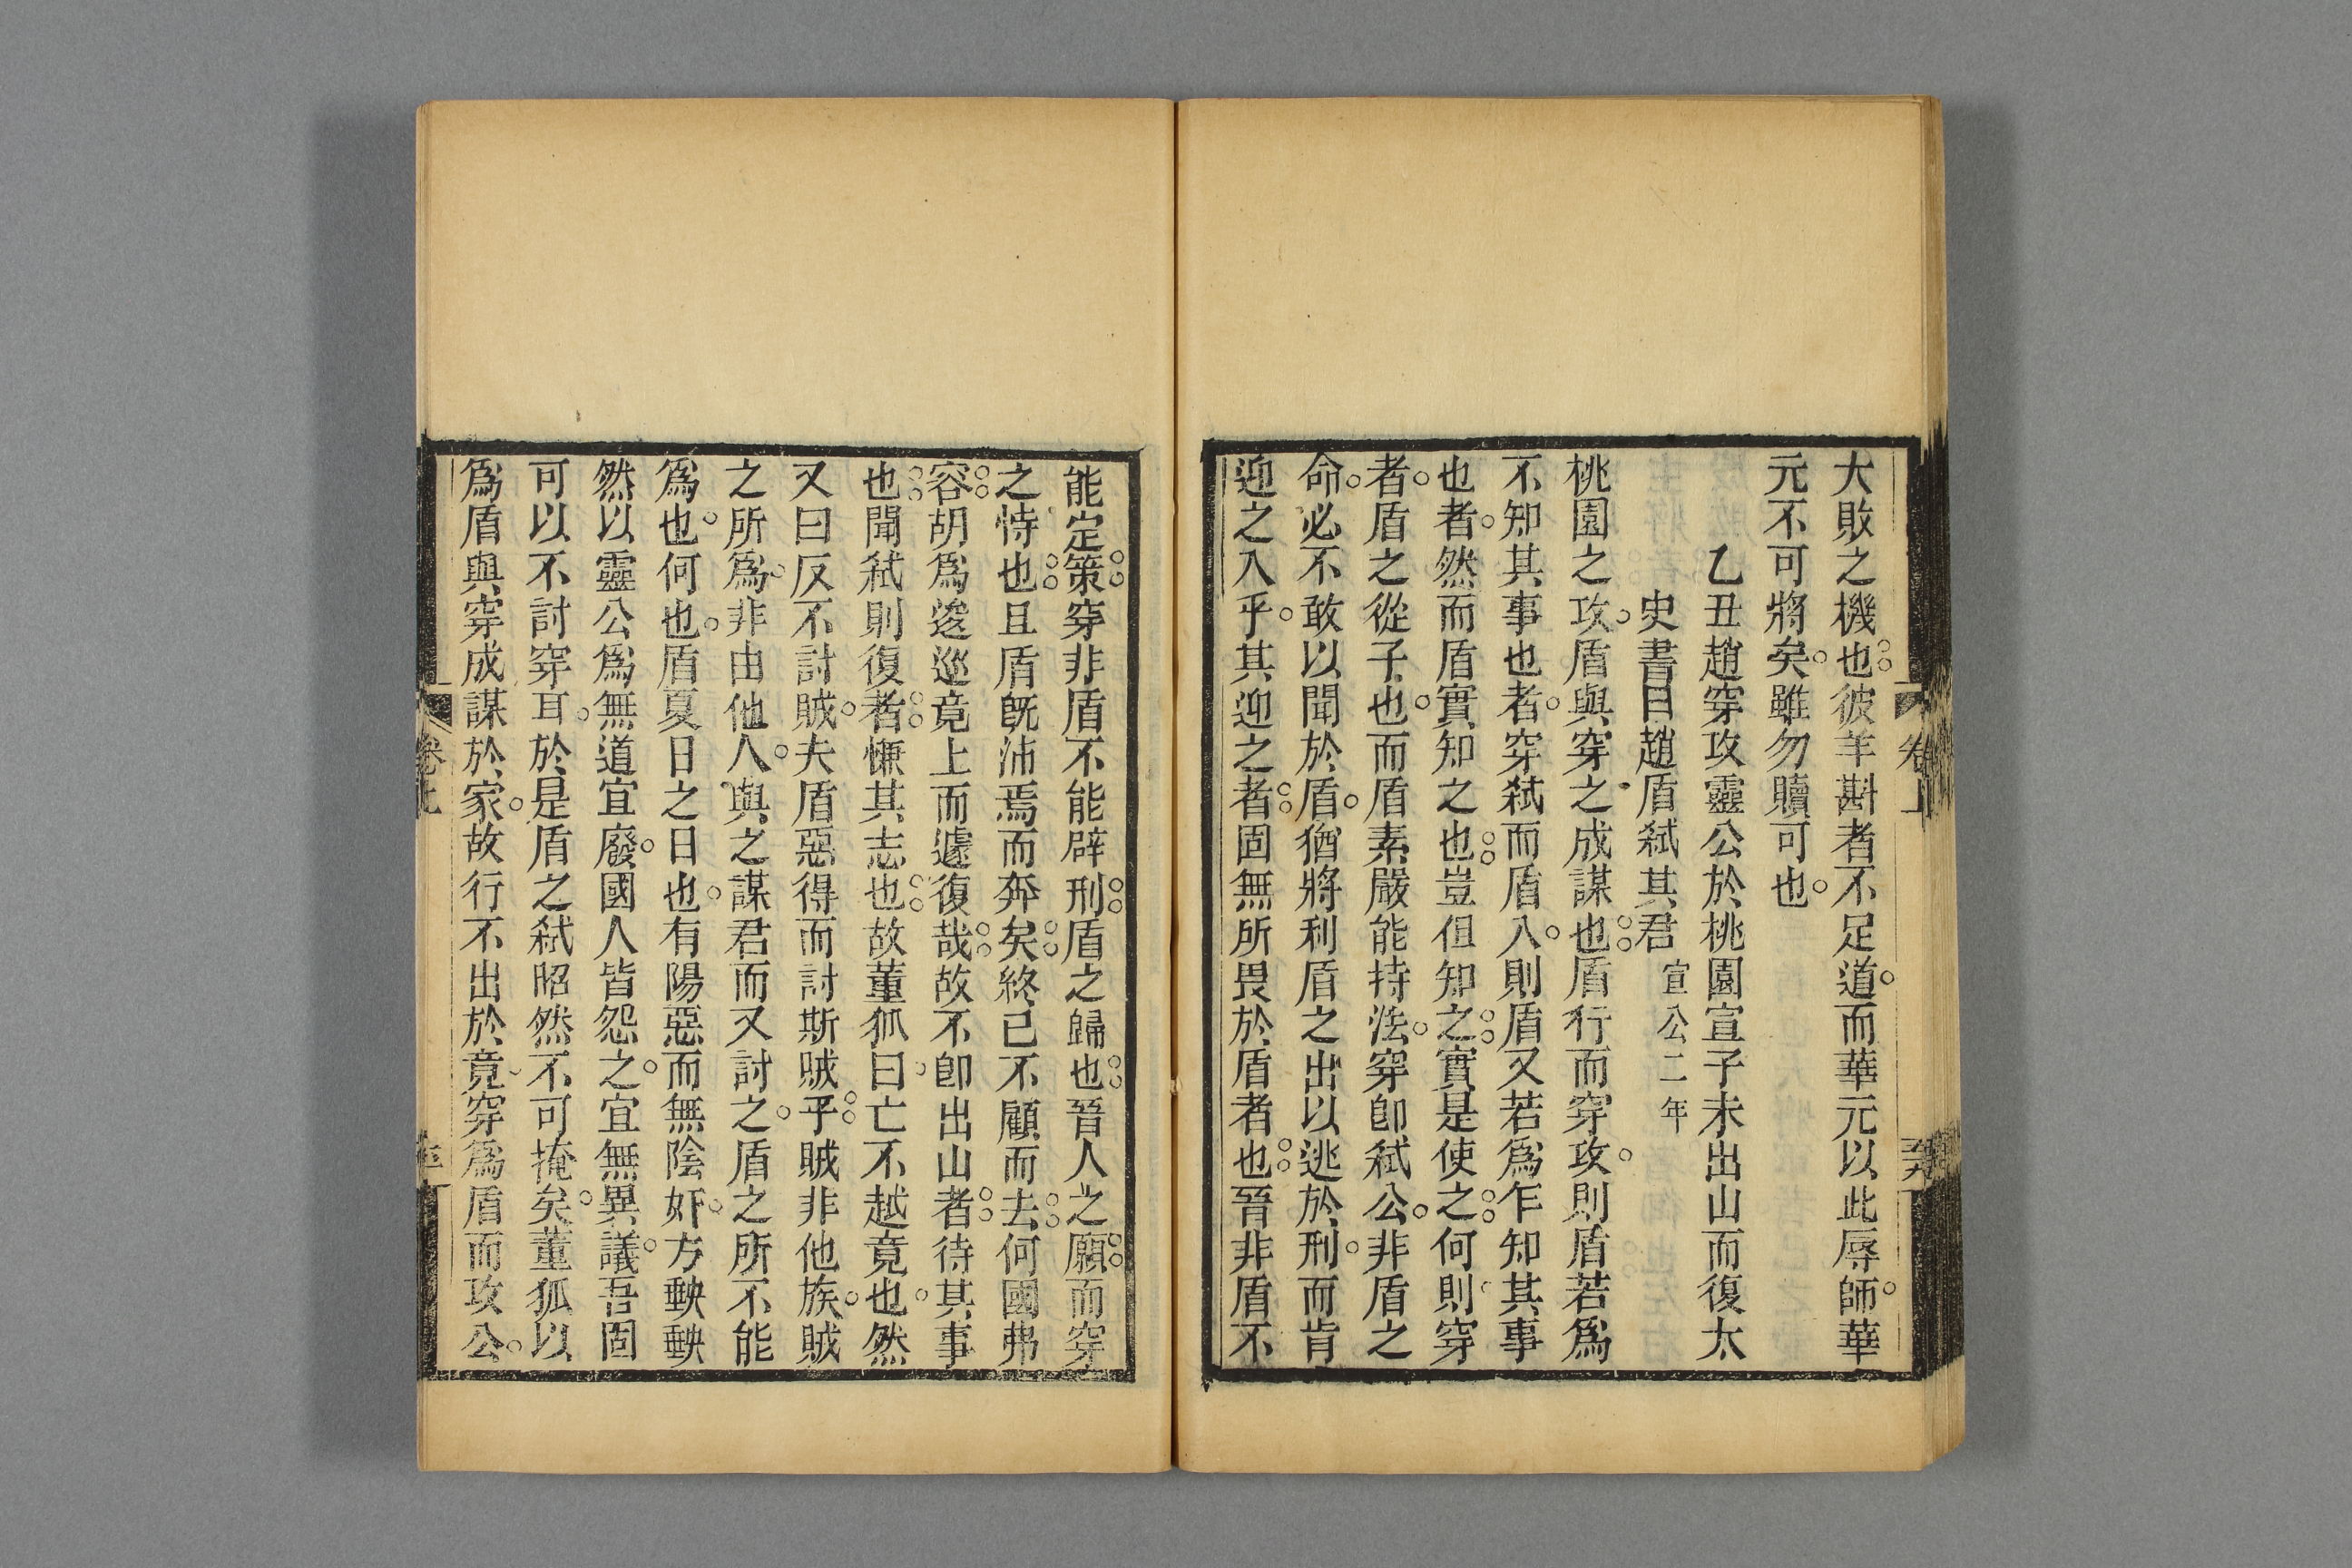 大敗之機也彼羊斟者不足道而華元以此辱師華
元不可將矣雖勿贖可也
乙丑趙穿攻靈公於桃園宣子未出山而復太
史書曰趙盾弒其君宣公二年
桃園之攻盾與穿之成謀也盾行而穿攻則盾若爲
不知其事也者穿弒而盾入則盾又若爲乍知其事
也者然而盾實知之也豈但知之實是使之何則穿
者盾之從子也而盾素嚴能持法穿卽弒公非盾之
命必不敢以聞於盾猶將利盾之出以逃於刑而肯
迎之入乎其迎之者固無所畏於盾者也晉非盾不
能定策穿非盾不能辟刑盾之歸也晉人之願而穿
之恃也且盾旣沛焉而奔矣終已不顧而去何國弗
容胡爲逡巡竟上而遽復哉故不卽出山者待其事
也聞弒則復者慊其志也故董狐曰亡不越竟也然
又曰反不討賊夫盾惡得而討斯賊乎賊非他族賊
之所爲非由他人與之謀君而又討之盾之所不能
爲也何也盾夏日之日也有陽惡而無陰奸方軮軮
然以靈公爲無道宜廢國人皆怨之宜無異議吾固
可以不討穿耳於是盾之弒昭然不可掩矣董狐以
爲盾與穿成謀於家故行不出於竟穿爲盾而攻公
卷上